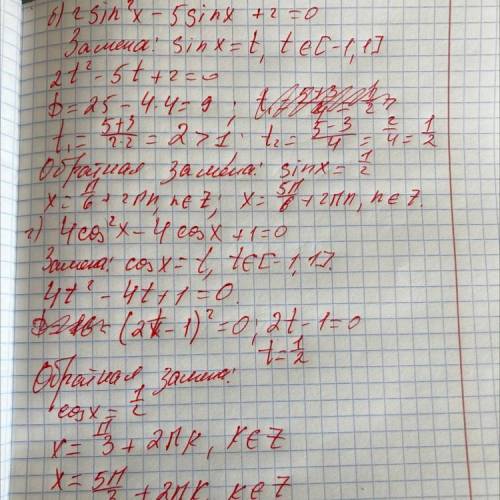 б) 2sin²x - 5sinx + 2 = 0
Замена: sinx = t, t∈[-1,1]
2t² - 5t + 2 = 0
D = 25 - 4·4 = 9 ;
t₁ = (5+3)/(2·2) = 2 > 1 ; t₂ = (5-3)/4 = 2/4 = 1/2
Обратная замена: sinx = 1/2
x = π/6 + 2πn, n∈Z ; x = 5π/6 + 2πn, n∈Z.
г) 4cos²x - 4cosx + 1 = 0
Замена: cosx = t, t∈[-1,1].
4t² - 4t + 1 = 0.
(2t - 1)² = 0 ; 2t - 1 = 0
t = 1/2
Обратная замена:
cosx = 1/2
x = π/3 + 2πk, k∈Z
x = 5π/3 + 2πk, k∈Z